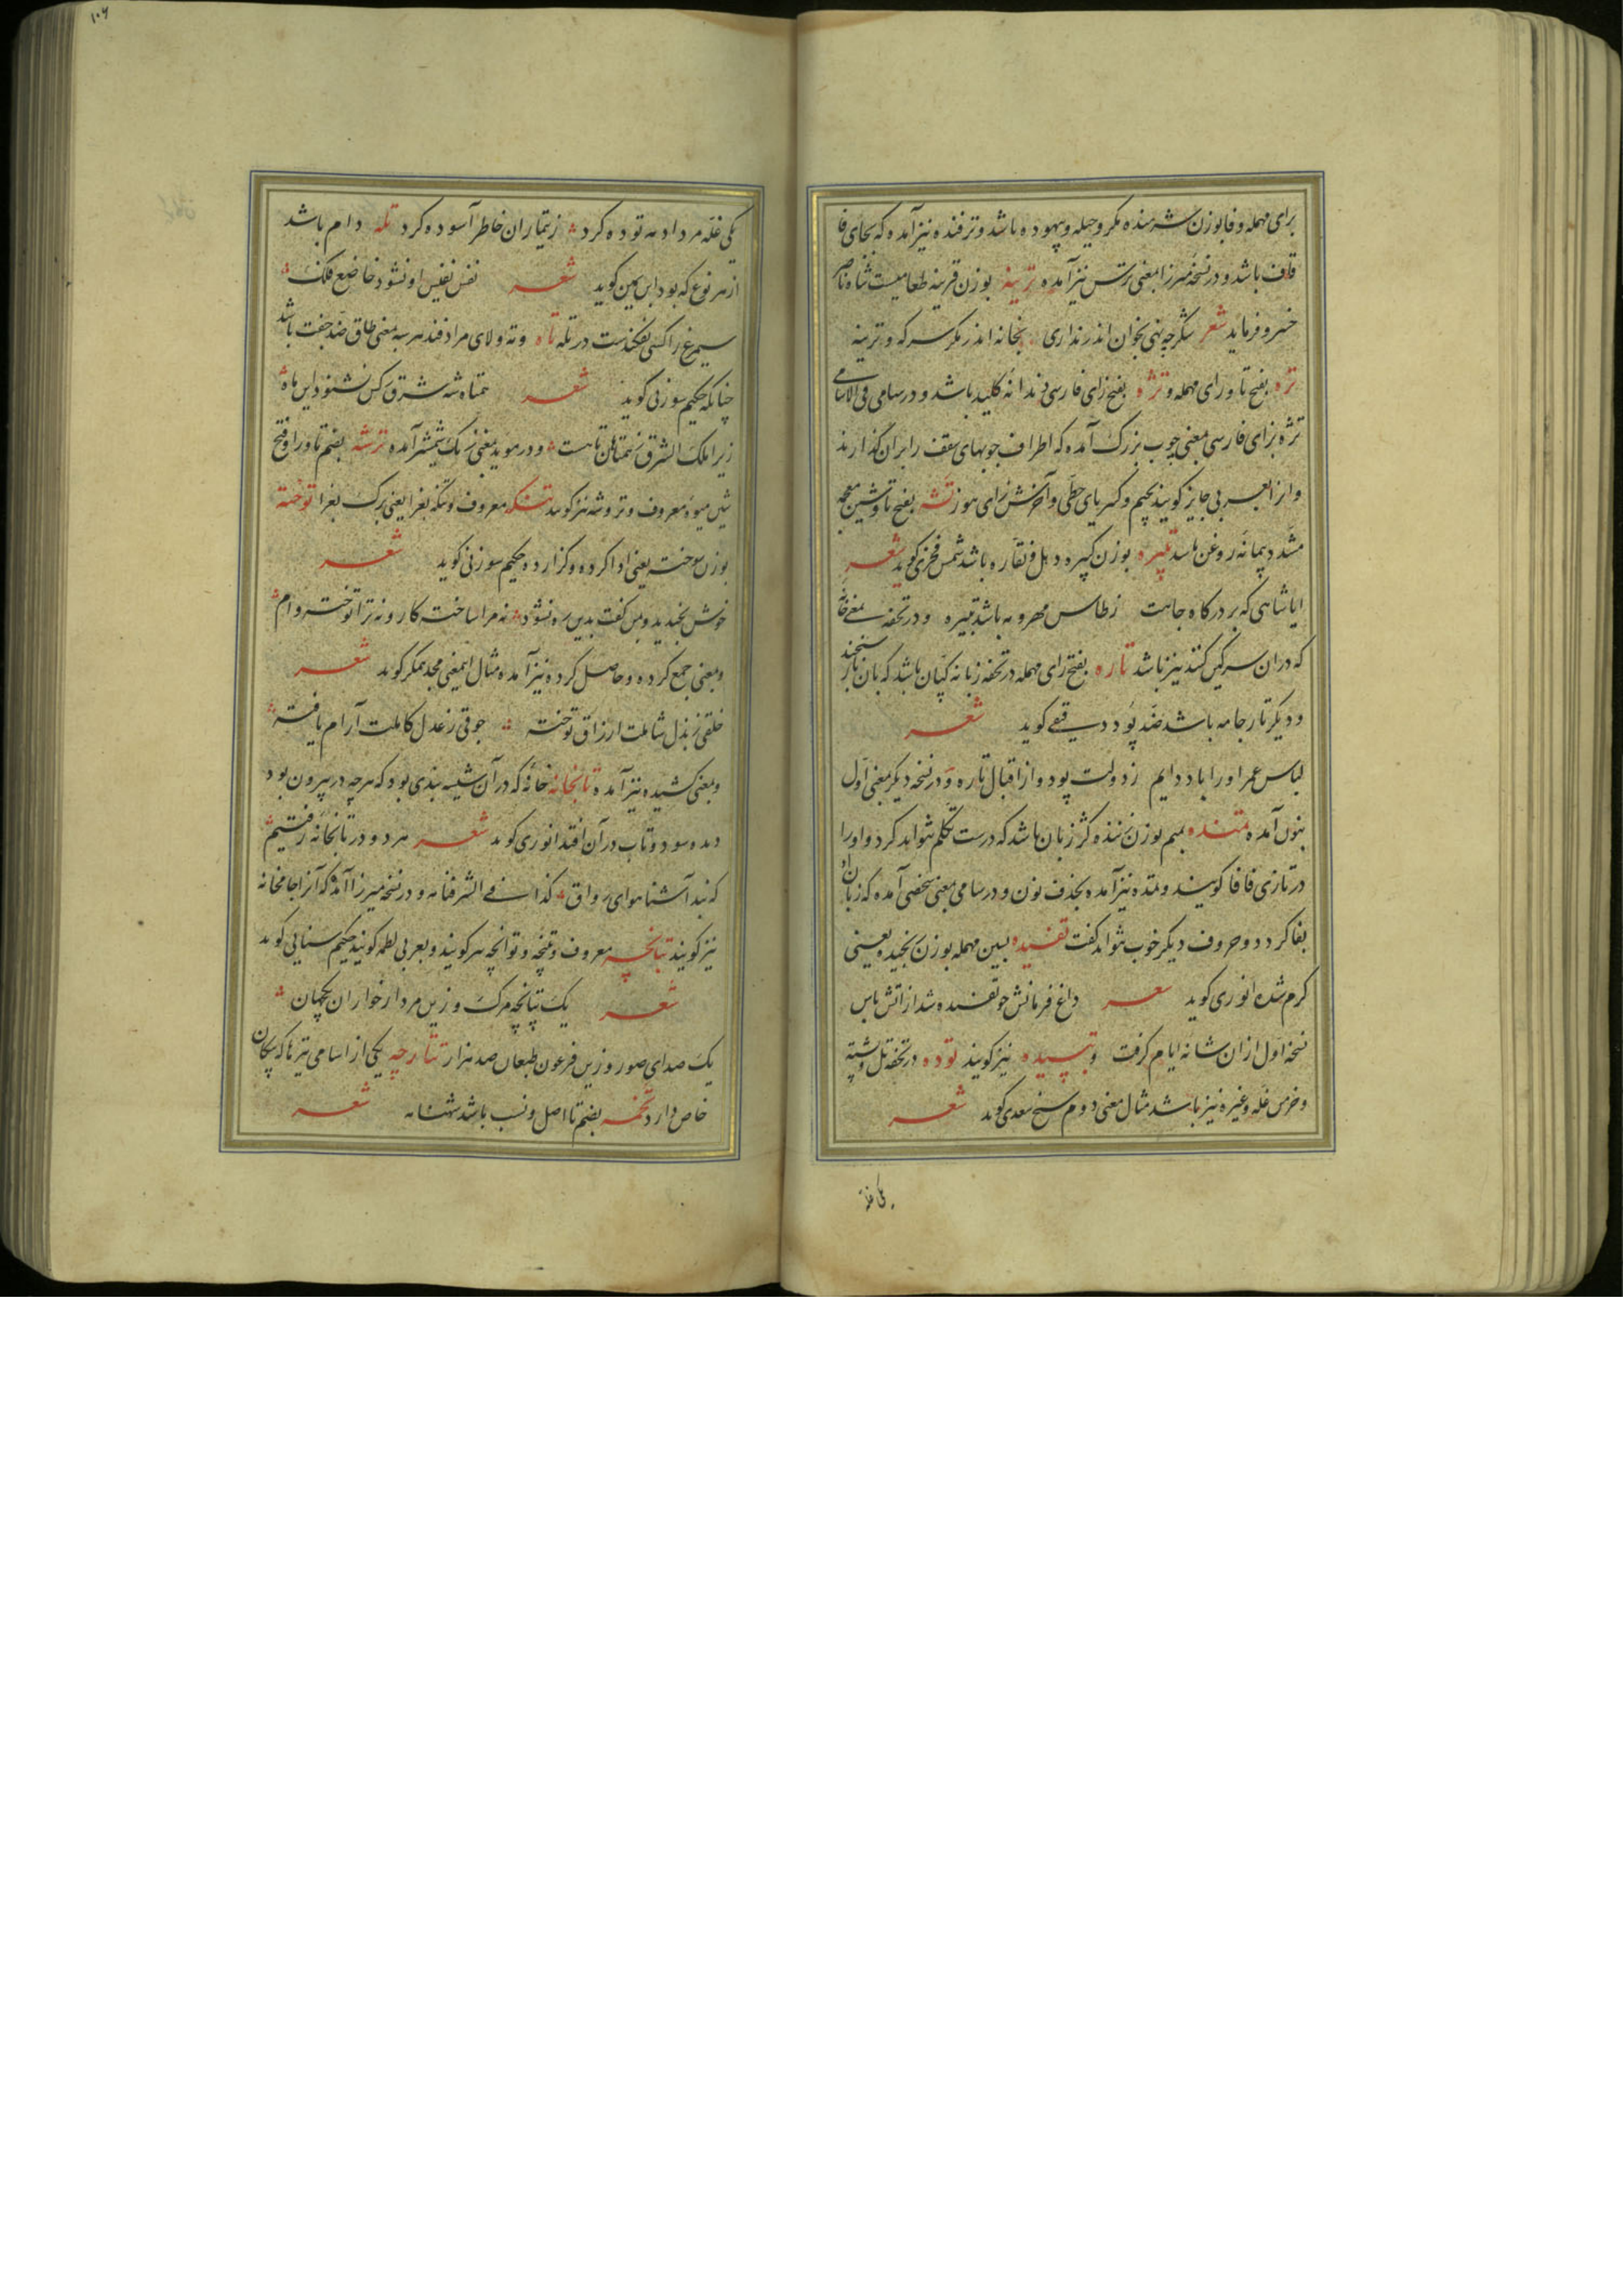 برای مهمله و فا بوزن شرمنده مکر و حیله و بیهوده باشد و ترفنده نیز آمده که بجای فا
قاف باشد و در نسخه میرزا بمعنی ترس نیز آمده ترینه بوزن قرینه طعامیست شاه ناصر
خسرو فرماید شعر شکر چه نهی بخوان اندر نداری بخانه اندر مکر سرکه و ترینه
تره بفتح تا و رای مهمله و تژه بفتح زای فارسی دندانه کلید باشد و در سامی فی الاسامی
تژه بزای فارسی بمعنی چوب بزرک آمده که اطراف چوبهای سقف را بران کذارند
و انرا بعربی جایز کویند بجیم و کسر یای حطی و آخرش زای هوز تشه بفتح تا و شین معجمه
مشدد پیمانه روغن باشد تبیره بوزن کبیره دهل و نقاره باشد شمس فخری کوید شعر
ایا شاهی که بر درکاه جاهت ز طاس مهر و مه باشد تبیره و در تحفه بمعنی خانه
که دران سرکین کنند نیز باشد تاره بفتح رای مهمله در تحفه زبانه کپان باشد که بان بار سنجند
و دیکر تار جامه باشد ضد پود دقیقی کوید شعر
لباس عمر او را باد دایم ز دولت پود و از اقبال تاره و در نسخه دیکر بمعنی اول
بنون آمده تمنده بمیم بوزن کژ زبان باشد که درست تکلم نتواند کرد و او را
در تازی فافا کویند و تمده نیز آمده بحذف نون و در سامی بمعنی شخصی آمده که زبان او
بفا کردد و حروف دیکر خوب نتواند کفت تفسیده بسین مهمله بوزن یعنی
کرم شده انوری کوید شعر داغ فرمانش چو تفسیده شد از آتش باس
نسخه اول ازان شانه ایام کرفت و تبسیده نیز کویند توده در تحفه تل و پشته
و خرمن غله و غیره نیز باشد مثال معنی دوم شیخ سعدی کوید شعر
یکی غله
۱۰۶
یکی غله مرداد مه توده کرد ز تیمار ان خاطر آسوده کرد تله دام باشد
از هر نوع که بود ابن یمین کوید شعر نفس نفیس او نشود خاضع فلک
سیمرغ را کسی نفکندست در تله تاه و ته و لای مرادفند هر سه بمعنی طاق ضد جفت باشد
چنانکه حکیم سوزنی کوید شعر همتاه شه شرق کس نشنود این تاه
زیرا ملک الشرق ز همتاهان تاهست و در موید بمعنی زنک شمشیر آمده ترشه بضم تا و را و فتح
شین میوه معروف و تروشه نیز کویند تتنکه معروف و تنکه بغرا یعنی برک بغرا توخته
بوزن سوخته یعنی ادا کرده و کزارده حکیم سوزنی کوید شعر
خوش بخندید و بمن کفت بدین ره نشود نه مرا ساخته کار و نه ترا توخته وام
و بمعنی جمع کرده و حاصل کرده نیز آمده مثال اینمعنی مجد همکر کوید شعر
خلقی ز بذل شاملت ارزاق توخته جوقی ز عدل کاملت آرام یافته
و بمعنی کشیده نیز آمده تابخانه خانهٔ که در آن شیشه بندی بود که هر چه در بیرون بود
دیده میشود و تاب در آن افتد انوری کوید شعر هر دو در تابخانه رفتیم
که نبد آشنا هوای رواق کذا فی الشرفنامه و در نسخه میرزا آمده که آنرا جامخانه
نیز کویند تپانچه معروف و تپنچه و توانچه هم کویند و بعربی لطمه کویند حکیم سنایی کوید
شعر یک تپانچه مرک و زین مردارخواران یکجهان
یک صدای صور و زین فرعون طبعان صد هزار تتارچه یکی از اسامی تیرها که پیکان
خاص دارد تخمه بضم تا اصل و نسب باشد شهنامه شعر